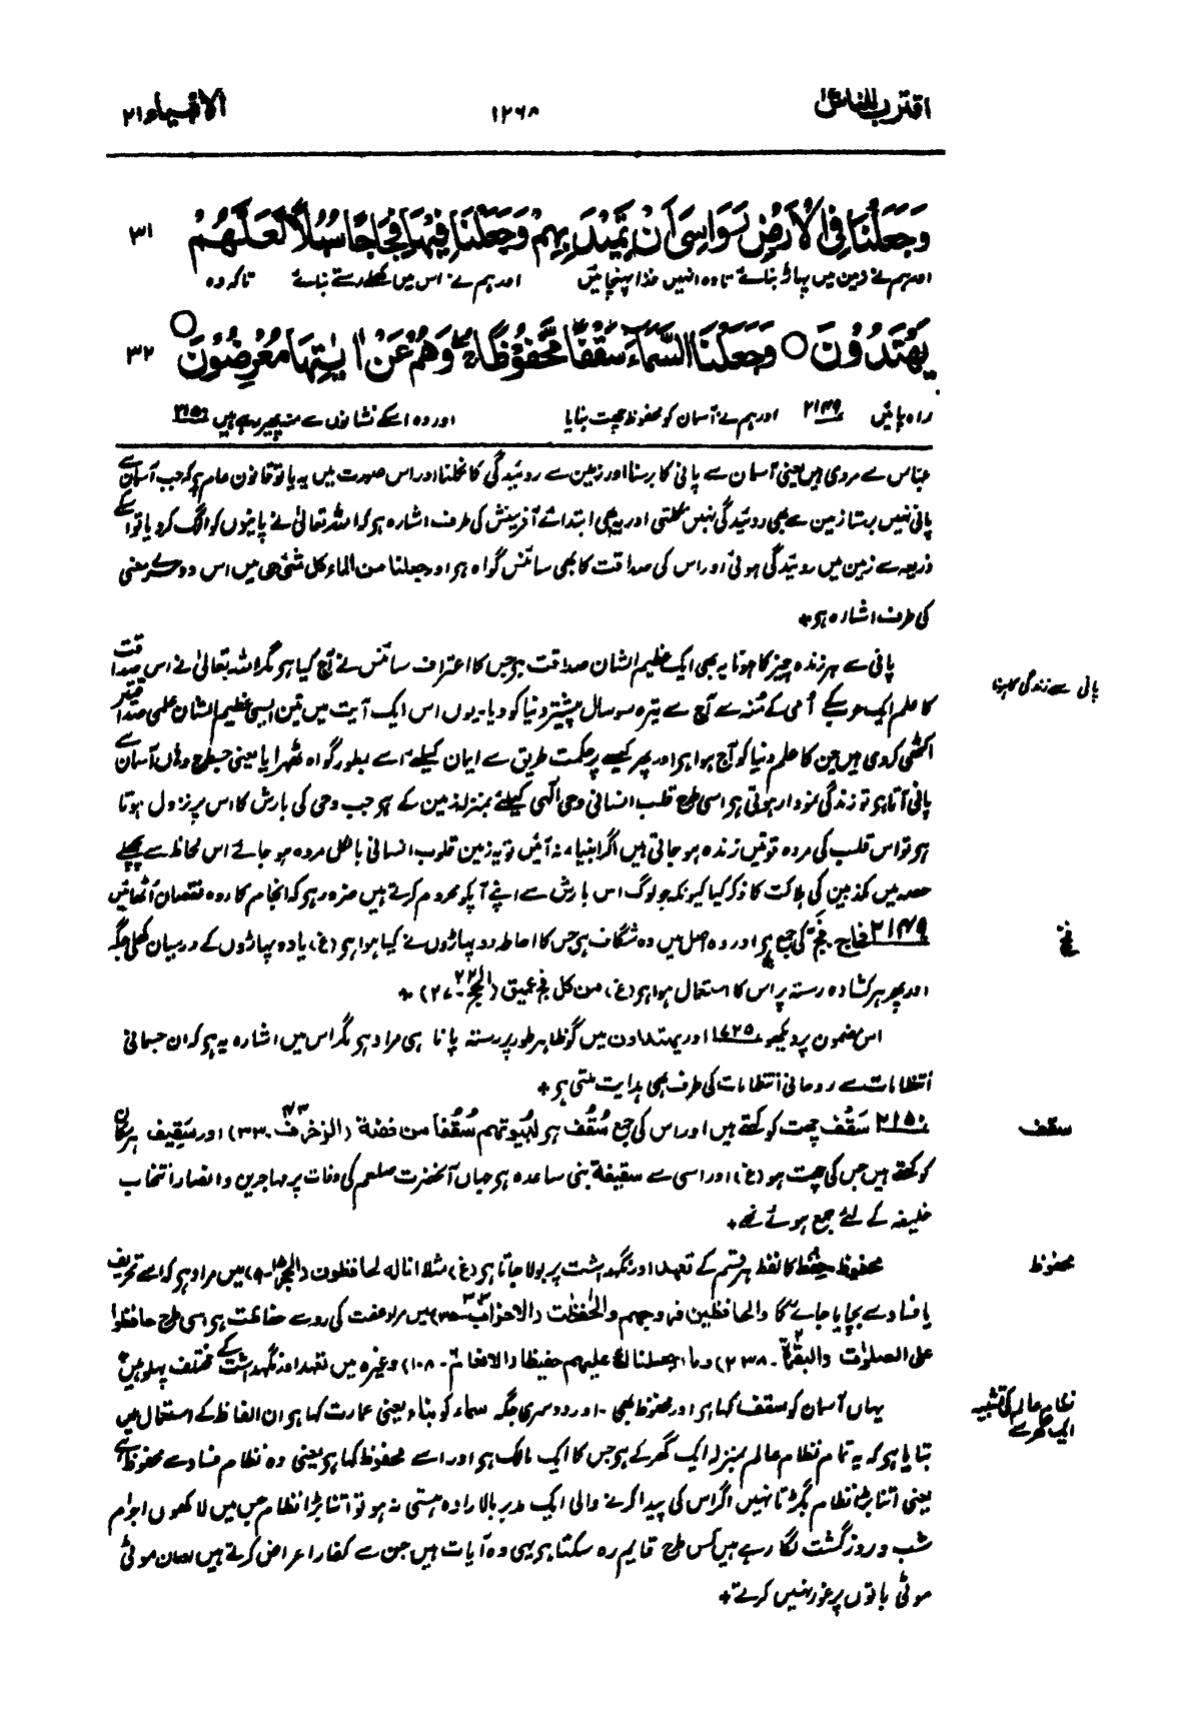 اقترب للناس ١٧
١٢٦٨
الانبیاء ٢١
وَجَعَلْنَا فِى الْاَرْضِ رَوَاسِىَ اَنْ تَمِيْدَ بِهِمْ وَجَعَلْنَا فِيْهَا فِجَاجًا سُبُلًا لَّعَلَّهُمْ ٣١
اور ہم نے زمین میں پہاڑ بنائے تا وہ انہیں غذا پہنچائیں اور ہم نے اس میں کھلے رستے بنائے تاکہ وہ
يَهْتَدُوْنَ ○ وَجَعَلْنَا السَّمَآءَ سَقْفًا مَّحْفُوْظًا ۖ وَّهُمْ عَنْ اٰيٰتِهَا مُعْرِضُوْنَ ○ ٣٢
راہ پائیں ٢١٤٩ اور ہم نے آسمان کو محفوظ چھت بنایا اور وہ اسکے نشانوں سے منہ پھیر رہے ہیں ٢١٥٠
عباس سے مروی ہیں یعنی آسمان سے پانی کا برسنا اور زمین سے روئیدگی کا نکلنا اور اس صورت میں یہ یا تو قانون عام ہو کہ جب آسمان سے
پانی نہیں برستا زمین سے بھی روئیدگی نہیں نکلتی اور یہ بھی ابتدائے آفرینش کی طرف اشارہ ہو کہ اللہ تعالیٰ نے پانیوں کو الگ کر دیا تو اسکے
ذریعہ سے زمین میں روئیدگی ہوئی اور اس کی صداقت کا بھی سائنس گواہ ہو اور جعلنا من الماء کل شیٔ حی میں اس دوسرے معنی
کی طرف اشارہ ہو +
پانی سے ہر زندہ چیز کا ہونا یہ بھی ایک عظیم الشان صداقت ہو جس کا اعتراف سائنس نے آج کیا ہو مگر اللہ تعالیٰ نے اس صداقت
پانی سے زندگی کا ہونا
کا علم ایک عرب کے اُمی کے مُنہ سے آج سے تیرہ سو سال پیشتر دنیا کو دیا۔ یوں اس ایک آیت میں تین ایسی عظیم الشان علمی صداقتیں
اکٹھی کردی ہیں جن کا علم دنیا کو آج ہوا ہو اور پھر کیسے پر حکمت طریق سے ایمان کیلئے اسے بطور گواہ ٹھہرایا یعنی جسطرح وہاں آسمان سے
پانی آتا ہو تو زندگی نمودار ہوتی ہو اسی طرح قلب انسانی وحی الٰہی کیلئے بمنزلہ زمین کے ہو جب وحی کی بارش کا اس پر نزول ہوتا
ہو تو اس قلب کی مردہ قوتیں زندہ ہو جاتی ہیں اگر انبیاء نہ آئیں تو یہ زمین قلوب انسانی بالکل مردہ ہو جائے اس لحاظ سے پچھلے
حصہ میں مکذبین کی ہلاکت کا ذکر کیا کیونکہ جو لوگ اس بارش سے اپنے آپکو محروم کرتے ہیں ضرور ہو کہ انجام کار وہ نقصان اٹھائیں
٢١٤٩ فجاج۔ فَجّ کی جمع ہو اور وہ اصل میں وہ شگاف ہو جس کا احاطہ دو پہاڑوں نے کیا ہوا ہو (غ)، یا دو پہاڑوں کے درمیان کھلی جگہ
فج
اور پھر ہر کشادہ رستہ پر اس کا استعمال ہوا ہو (غ)، من کل فج عمیق (الحج ٢٢۔ ٢٧) +
اس مضمون پر دیکھو ١٧٢٥ اور یھتدون میں گو ظاہر طور پر رستہ پانا ہی مراد ہو مگر اس میں اشارہ یہ ہو کہ ان جسمانی
انتظامات سے روحانی انتظامات کی طرف بھی ہدایت ملتی ہو +
٢١٥٠ سَقْف چھت کو کہتے ہیں اور اس کی جمع سُقُف ہو لبیوتھم سُقُفا من فضة (الزخرف ٤٣۔ ٣٣) اور سَقِیف ہر مکان
سقف
کو کہتے ہیں جس کی چھت ہو (غ) اور اسی سے سقیفة بنی ساعدہ ہو جہاں آنحضرت صلعم کی وفات پر مہاجرین و انصار انتخاب
خلیفہ کے لئے جمع ہوئے تھے +
محفوظ حِفْظ کا لفظ ہر قسم کے تعہد اور نگہداشت پر بولا جاتا ہو (غ) مثلا انا له لحافظون (الحجر ١٥۔ ٩) میں مراد ہو کہ اسے تحریف
محفوظ
یا فساد سے بچایا جائے گا والحافظین فروجھم والحٰفظٰت (الاحزاب ٣٣۔ ٣٥) میں مراد عفت کی رو سے حفاظت ہو اسی طرح حافظوا
علی الصلوٰت (البقرة ٢۔ ٢٣٨) وما جعلناك علیھم حفیظا (الانعام ٦۔ ١٠٨) وغیرہ میں تعہد اور نگہداشت کے مختلف پہلو ہیں
یہاں آسمان کو سقف کہا ہو اور محفوظ بھی۔ اور دوسری جگہ سماء کو بناء یعنی عمارت کہا ہو ان الفاظ کے استعمال میں
نظام عالم کی تشبیہ
ایک گھر سے
بتایا ہو کہ یہ تمام نظام عالم بمنزلہ ایک گھر کے ہو جس کا ایک مالک ہو اور اسے محفوظ کہا ہو یعنی وہ نظام فساد سے محفوظ ہے
یعنی اتنا بڑا نظام بگڑتا نہیں اگر اس کی پیدا کرنے والی ایک مدبر بالارادہ ہستی نہ ہو تو اتنا بڑا نظام جس میں لاکھوں اجرام
شب و روز گشت لگا رہے ہیں کس طرح قایم رہ سکتا ہو یہی وہ آیات ہیں جن سے کفار اعراض کرتے ہیں اور ان موٹی
موٹی باتوں پر غور نہیں کرتے +